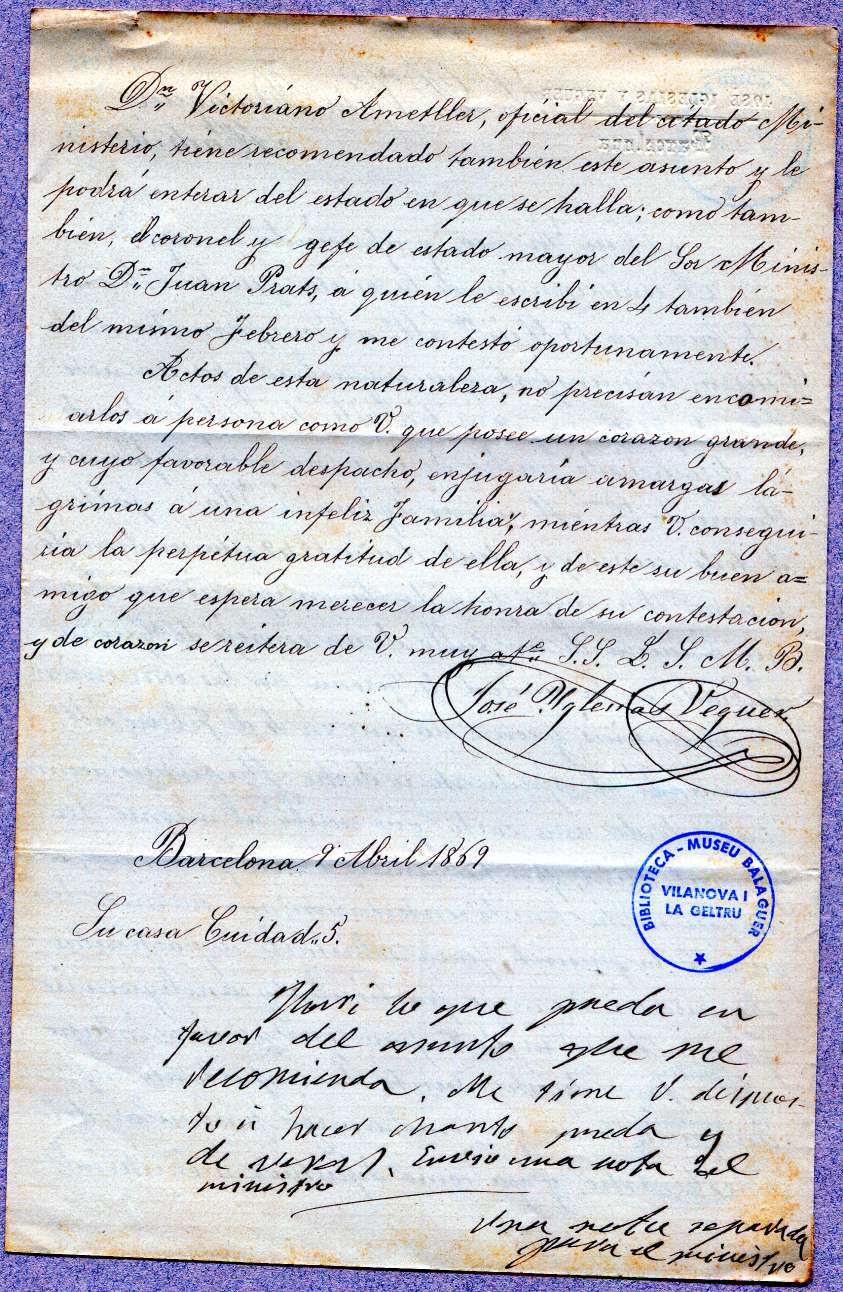 Dⁿ Victoriano Ametller, oficial del citado Mi-
nisterio, tiene recomendado también este asunto y le
podrá enterar del estado en que se halla; como tam-
bién, el coronel y gefe de estado mayor del Sor Minis-
tro Dⁿ Juan Prats, á quién le escribí en 4 también
del mismo Febrero y me contestó oportunamente.
Actos de esta naturaleza, no precisan encomi=
arlos á persona como V. que posee un corazon grande,
y cuyo favorable despacho, enjugaría amargas lá-
grimas á una infeliz Familia, miéntras V. consegui-
ria la perpétua gratitud de ella, y de este su buen a=
migo que espera merecer la honra de su contestacion,
y de corazon se reitera de V. muy atº S. S. Q. S. M. B.
José Yglesias Veguer
Barcelona 9 Abril 1869
Su casa Cuidad 5.
BIBLIOTECA - MUSEU BALAGUER
VILANOVA I
LA GELTRU
Haré lo que pueda en
favor del asunto que me
recomienda. Me tiene V. dispues-
to á hacer cuanto pueda y
de Envio una nota del
ministro
Una nota separada
para el ministro